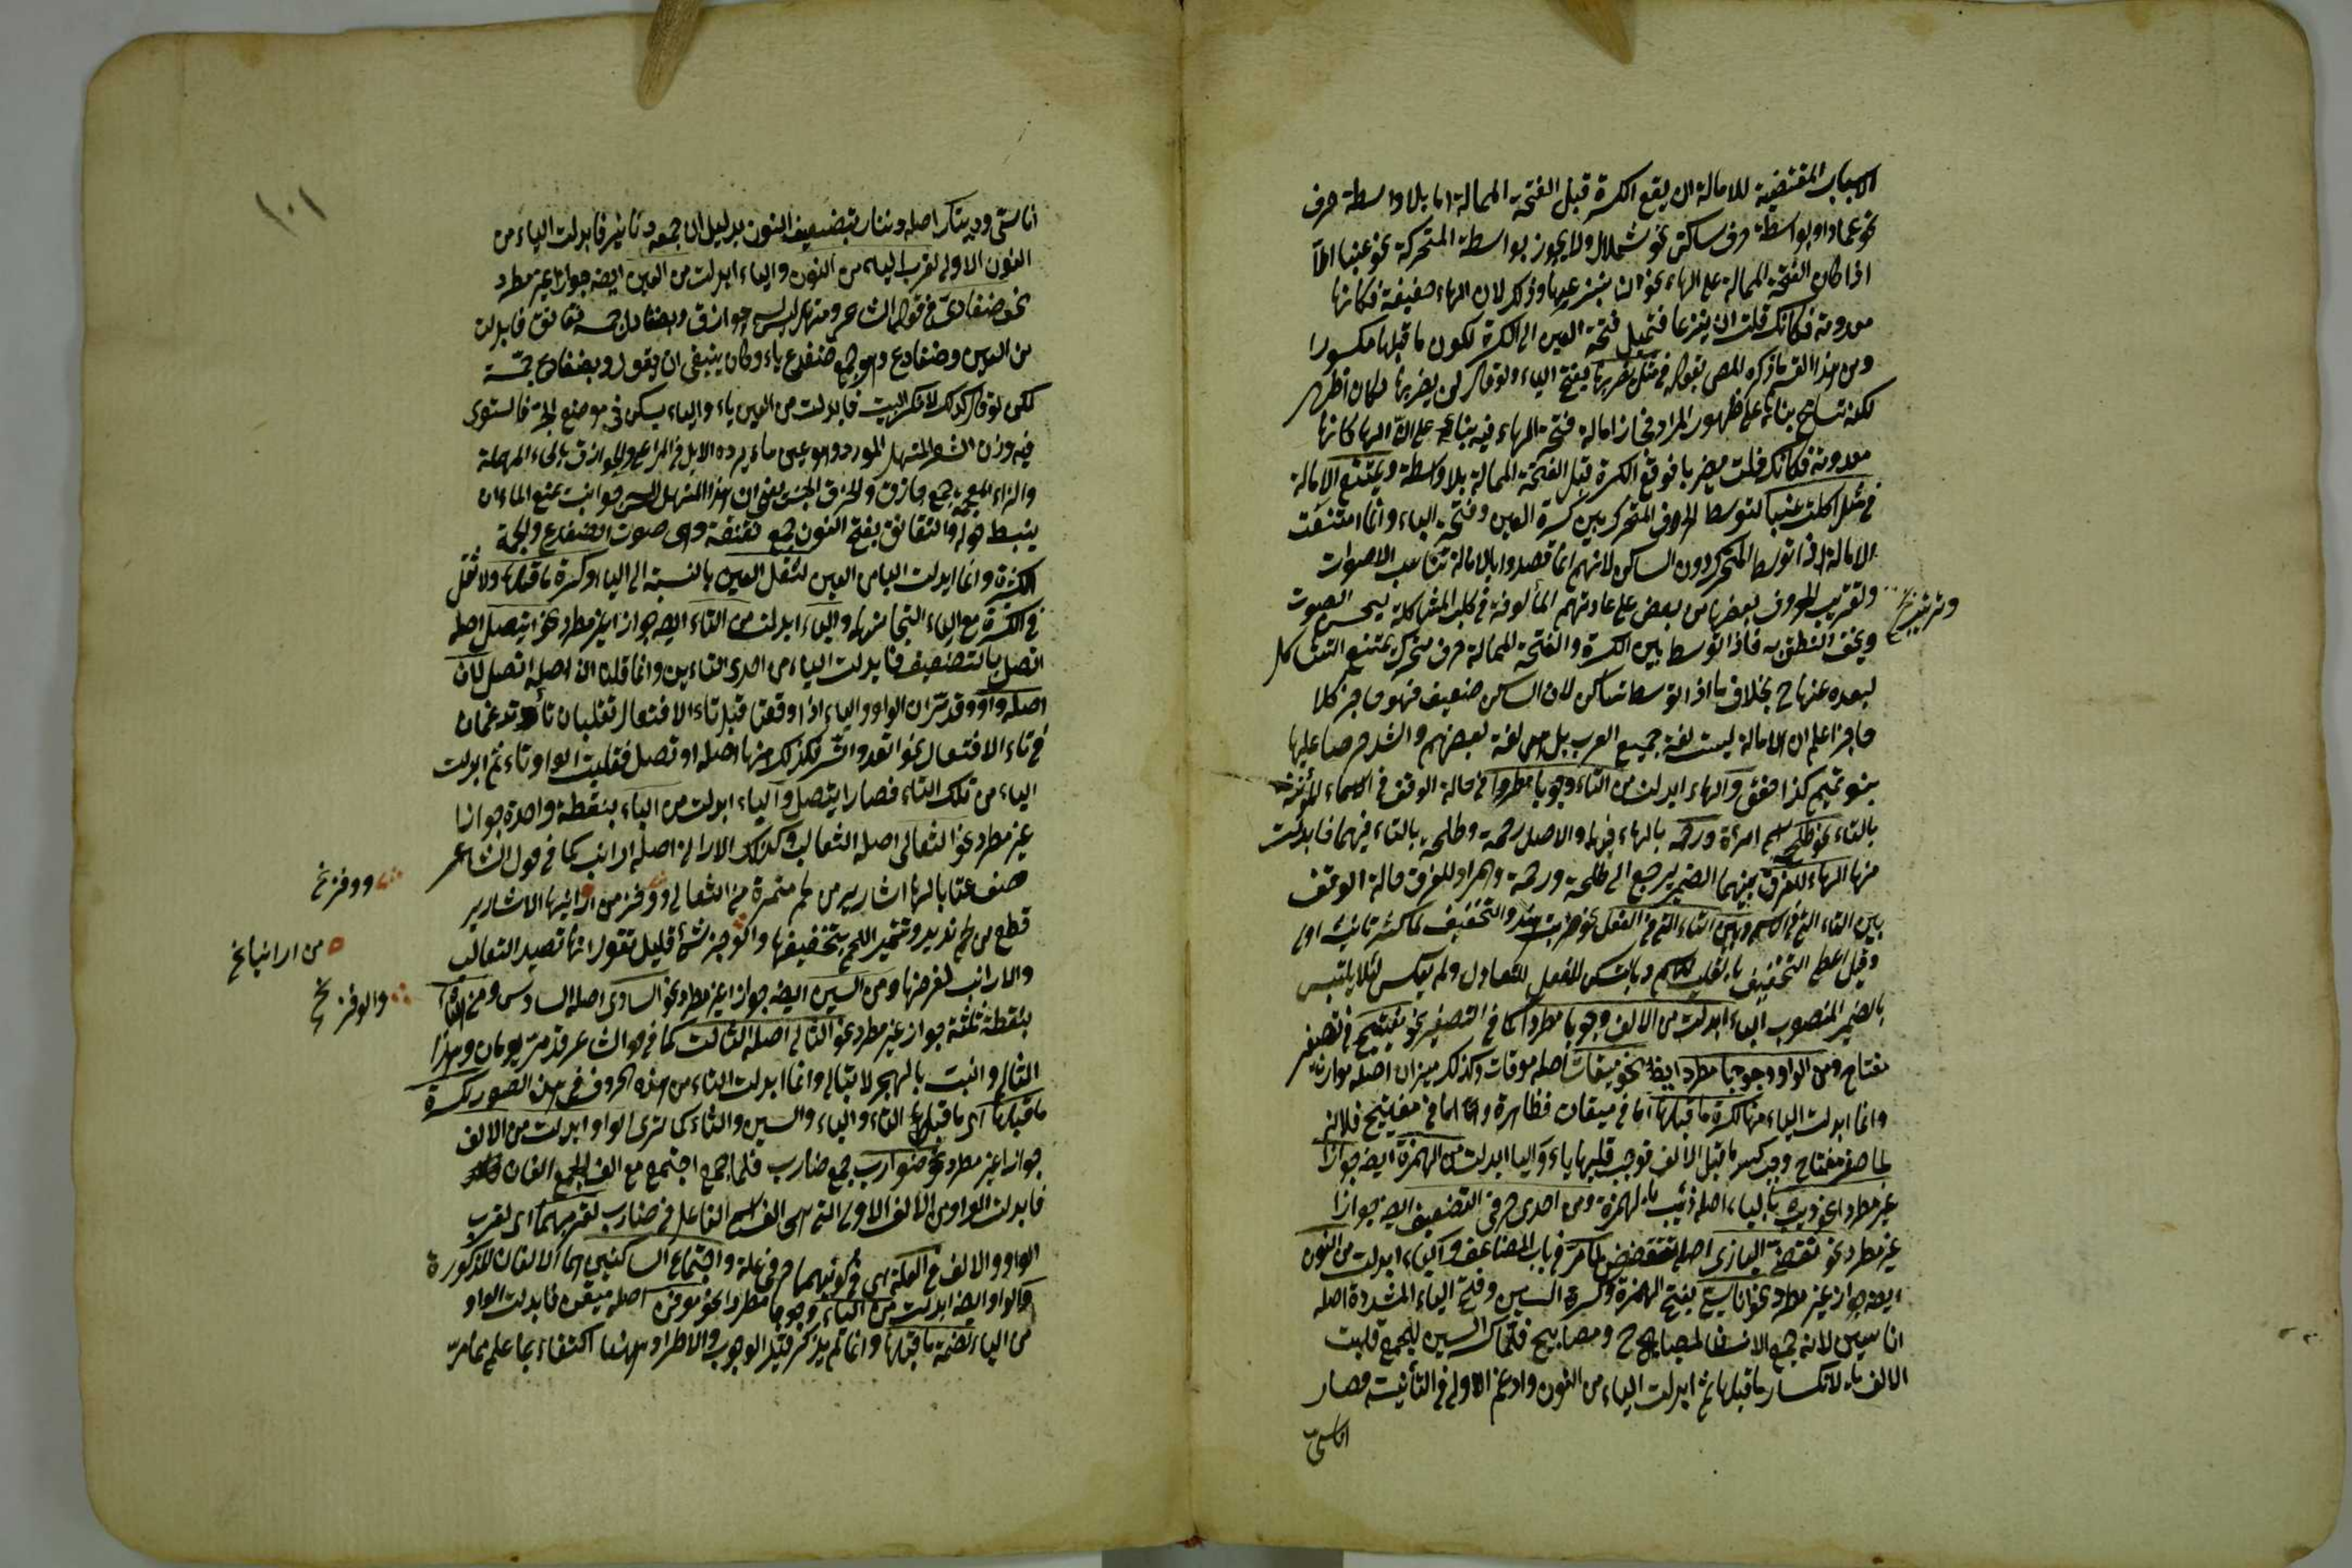 الاسباب المقتضية للامالة ان يقع الكسرة قبل الفتحة الممالة اما بلا واسطة حرف
نحو عماد او بواسطة حرف ساكن نحو شملال ولا يجوز بواسطة المتحركة نحو عنبا الا
اذا كان الفتحة الممالة على الهاء نحو ان ينزعها وذلك لان الهاء ضعيفة فكانها
معدومة فكانك قلت ان ينزعا فتميل فتحة العين الى الكسرة لكون ما قبلها مكسورا
ومن هذا القسم ما ذكره المص بقوله في مثل يضربها بفتح الباء ولو قال لن يضربها لكان اظهر
لكنه تسامح بناء على ظهور المراد فجاز امالة فتحة الهاء فيه بناء على ان الهاء كانها
معدومة فكانك قلت يضربا فوقع الكسرة قبل الفتحة الممالة بلا واسطة ويمتنع الامالة
في مثل اكلت عنبا لتوسط الحرف المتحرك بين كسرة العين وفتحة الباء وانما امتنعت
الامالة اذا توسط المتحرك دون الساكن لانهم انما قصدوا بالامالة تناسب الاصوات
وتقريب الحروف بعضها من بعض على عادتهم المألوفة في طلب المشاكلة ليحسن الصوت
ويخف النطق به فاذا توسط بين الكسرة والفتحة الممالة حرف متحرك يمتنع التشاكل
لبعده عنها ح بخلاف ما اذا توسط ساكن لان الساكن ضعيف فهو حاجز كلا
حاجز اعلم ان الامالة ليست لغة جميع العرب بل هي لغة بعضهم واشدهم حرصا عليها
بنو تميم كذا حقق والهاء ابدلت من التاء وجوبا مطردا في حالة الوقف في الاسماء المؤنثة
بالتاء نحو طلحة اسم امرأة ورحمه بالهاء فيها والاصل رحمة وطلحة بالتاء فيهما فابدلت
منها الهاء للفرق بينهما الضمير يرجع الى طلحة ورحمة والمراد للفرق حالة الوقف
بين التاء التي في الاسم وبين التاء التي في الفعل نحو ضربت هند والتخفيف لما كثر تانيث اولى
وقيل اعطى التخفيف بالقلب للاسم وبالسكن للفعل للتعادل ولم يعكس لئلا يلتبس
بالضمير المنصوب الياء ابدلت من الالف وجوبا مطردا كما في التصغير نحو مفيتيح في تصغير
مفتاح ومن الواو وجوبا مطردا ايضا نحو ميقات اصله موقات وكذلك ميزان اصله موازنة
وانما ابدلت الياء منها لكسرة ما قبلها اما في ميقات فظاهرة واما في مفيتيح فلانه
لما صغر مفتاح وجب كسر ما قبل الالف فوجب قلبها ياء والياء ابدلت من الهمزة ايضه جوازا
غير مطرد نحو ذيب بالياء اصله ذئب بالهمزة ومن احدى حرفي التضعيف ايضه جوازا
غير مطرد نحو تقضى البازى اصله تقضض لما مر في باب المضاعف والياء ابدلت من النون
ايضه جوازا غير مطرد نحو اناسي بفتح الهمزة وكسرة السين وفتح الياء المشددة اصله
اناسين لانه جمع الانسان كمصباح ومصابيح فلما كسر السين للجمع قلبت
الالف ياء لانكسار ما قبلها ثم ابدلت الياء من النون وادغم الاولى في الثانية فصار
اناسي
وتقريب نخ
١٠١
اناسي ودينار اصله دننار بتضعيف النون بدليل ان جمعه دنانير فابدلت الياء من
النون الاولى لقرب الياء من النون والياء ابدلت من العين ايضه جوازا غير مطرد
نحو ضفادى في قول الشاعر ومنهل ليس له حوازق ولضفادى جمه نقانق فابدلت
من العين وضفادع وهو جمع ضفدع ياء وكان ينبغى ان يقول ولضفادع جمه
لكن لو قال كذلك لانكسر البيت فابدلت من العين ياء والياء يسكن في موضع الجر فاستوى
فيه وزن الشعر المنهل المورد وهو عين ماء يرده الابل في المراعي والحوازق بالحاء المهملة
والزاء المعجمة جمع حازق والحزق الحبس يعني ان هذا المنهل ليس له جوانب تمنع الماء ان
ينبسط حوله والنقانق بفتح النون جمع نقنقة وهي صوت الضفدع والجمة
الكثرة وانما ابدلت الياء من العين لثقل العين بالنسبة الى الياء وكسرة ما قبلها ولا ثقل
في الكسرة مع الياء التي ما نزلها والياء ابدلت من التاء ايضه جوازا غير مطرد نحو ايتصل اصله
اتصل بالتضعيف فابدلت الياء من احدى التاءين وانما قلنا ان اصله اتصل لان
اصله واو وقد مر ان الواو والياء اذا وقعتا قبل تاء الافتعال تقلبان تاء وتدغمان
في تاء الافتعال نحو اتعد واتسر فكذلك منها اصله اوتصل فقلبت الواو تاء ثم ابدلت
الياء من تلك التاء فصار ايتصل والياء ابدلت من الباء بنقطة واحدة جوازا
غير مطرد نحو الثعالى اصله الثعالب وكذلك الارانى اصله ارانب كما في قول الشاعر
صف عقابا لها اشارير من لحم متمرة من الثعالى ووفز من ارانيها الاشارير
قطع من لحم قديد وتتمير اللحم بتخفيفها والوخز شئ قليل يقول انها تصيد الثعالب
والارانب لفرخها ومن السين ايضه جوازا غير مطرد نحو السادى اصله السادس ومن الثاء
بنقطة ثلثة جوازا غير مطرد نحو الثالى اصله الثالث كما في قول الشاعر قد مر يومان وهذا
الثالى وانت بالهجر لا تبالى وانما ابدلت الياء من هذه الحروف في هذه الصور لكسرة
ما قبلها اى ما قبل التاء والباء والسين والثاء كما ترى الواو ابدلت من الالف
جوازا غير مطرد نحو ضوارب جمع ضارب فلما جمع اجتمع مع الف الجمع الفان
فابدلت الواو من الالف الاولى التي هي الف اسم الفاعل في ضارب لقربهما اى لقرب
الواو والالف في العلة هي في كونهما حرفي علة واجتماع الساكنين هما الالفان المذكورة
والواو ايضه ابدلت من الياء وجوبا مطردا نحو موقن اصله ميقن فابدلت الواو
من الياء لضمة ما قبلها وانما لم يذكر قيد الوجوب والاطراد ههنا اكتفاء بما علم مما مر
ووفز نخ
من ارانبها نخ
والوفز نخ